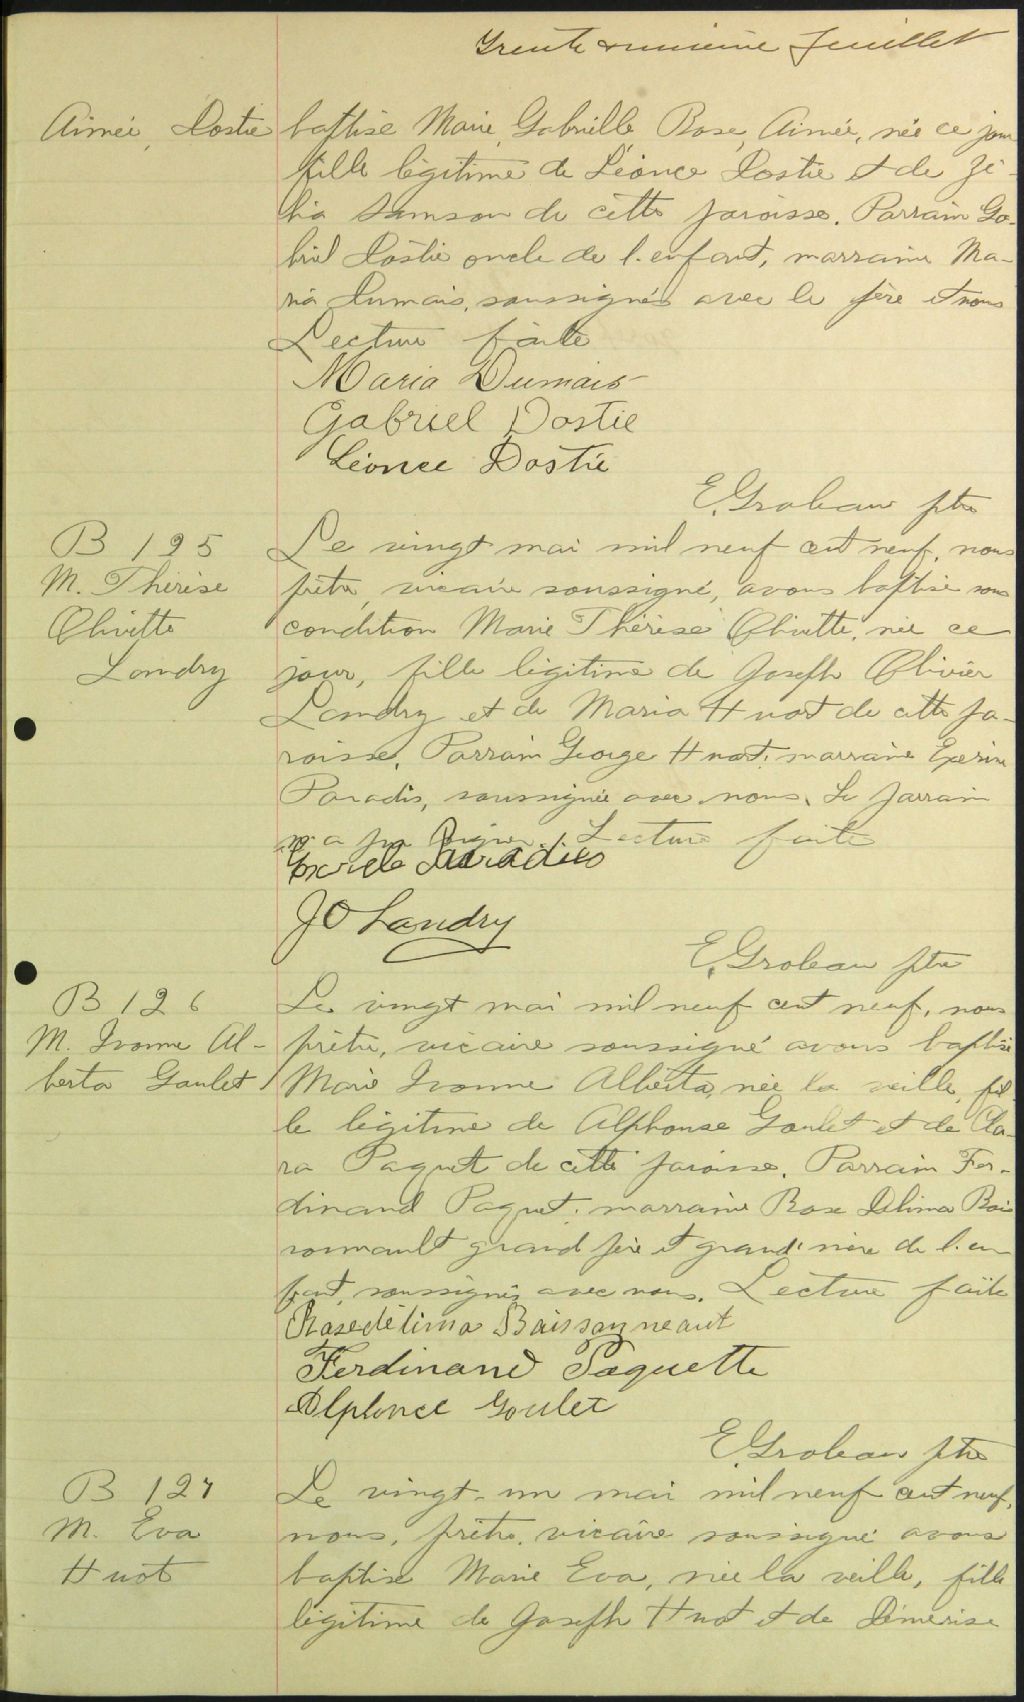 Trente & unième feuillet
Aimée Dostie
baptisé Marie Gabrielle Rose Aimée, née ce jour
fille légitime de Léonce Dostie et de Zé-
lia Samson de cette paroisse. Parrain Ga-
briel Dostie oncle de l'enfant, marraine Ma-
ria Dumais, soussignés avec le père et nous
Lecture faite
Maria Dumais
Gabriel Dostie
Léonce Dostie
E. Grobeau ptre
B 125
M. Thérèse
Olivette
Landry
Le vingt mai mil neuf cent neuf, nous
prêtre, vicaire soussigné, avons baptisé sous
condition Marie Thérèse Olivette, née ce
jour, fille légitime de Joseph Olivier
Landry et de Maria Huot de cette pa-
roisse. Parrain George Huot; marraine
Paradis, soussignée avec nous. Le parrain
n'a pu signer. Lecture faite
Paradis
JO Landry
E. Grobeau ptre
B 126
M. Ivonne Al-
berta Goulet
Le vingt mai mil neuf cent neuf, nous
prêtre, vicaire soussigné avons baptisé
Marie Ivonne Alberta, née la veille, fil-
le légitime de Alphonse Goulet et de Cla-
ra Paquet de cette paroisse. Parrain Fer-
dinand Paquet; marraine Rose Délima Bois
sonnault grand père et grand'mère de l'en
fant, soussignés avec nous. Lecture faite
Rosedélima Baissonneaut
Ferdinand Paquette
Alphonce Goulet
E. Grobeau ptre
B 127
M. Eva
Huot
Le vingt-un mai mil neuf cent neuf,
nous, prêtre, vicaire soussigné avons
baptisé Marie Eva, née la veille, fille
légitime de Joseph Huot et de Démerise